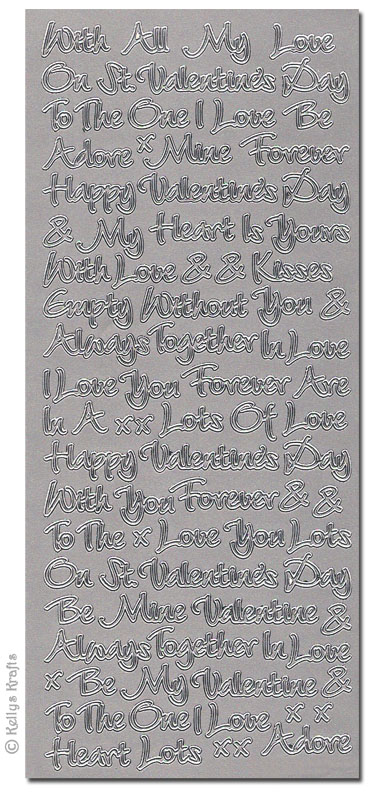 With All My Love
On St. Valentine's Day
To The One I Love Be
Adore x Mine Forever
Happy Valentine's Day
& My Heart Is Yours
With Love & & Kisses
Empty Without You &
Always Together In Love
I Love You Forever Are
In A xx Lots Of Love
Happy Valentine's Day
With You Forever & &
To The x Love You Lots
On St. Valentine's Day
Be Mine Valentine &
Always Together In Love
x Be My Valentine &
To The One I Love x x
Heart Lots xx Adore
© Kellys Krafts